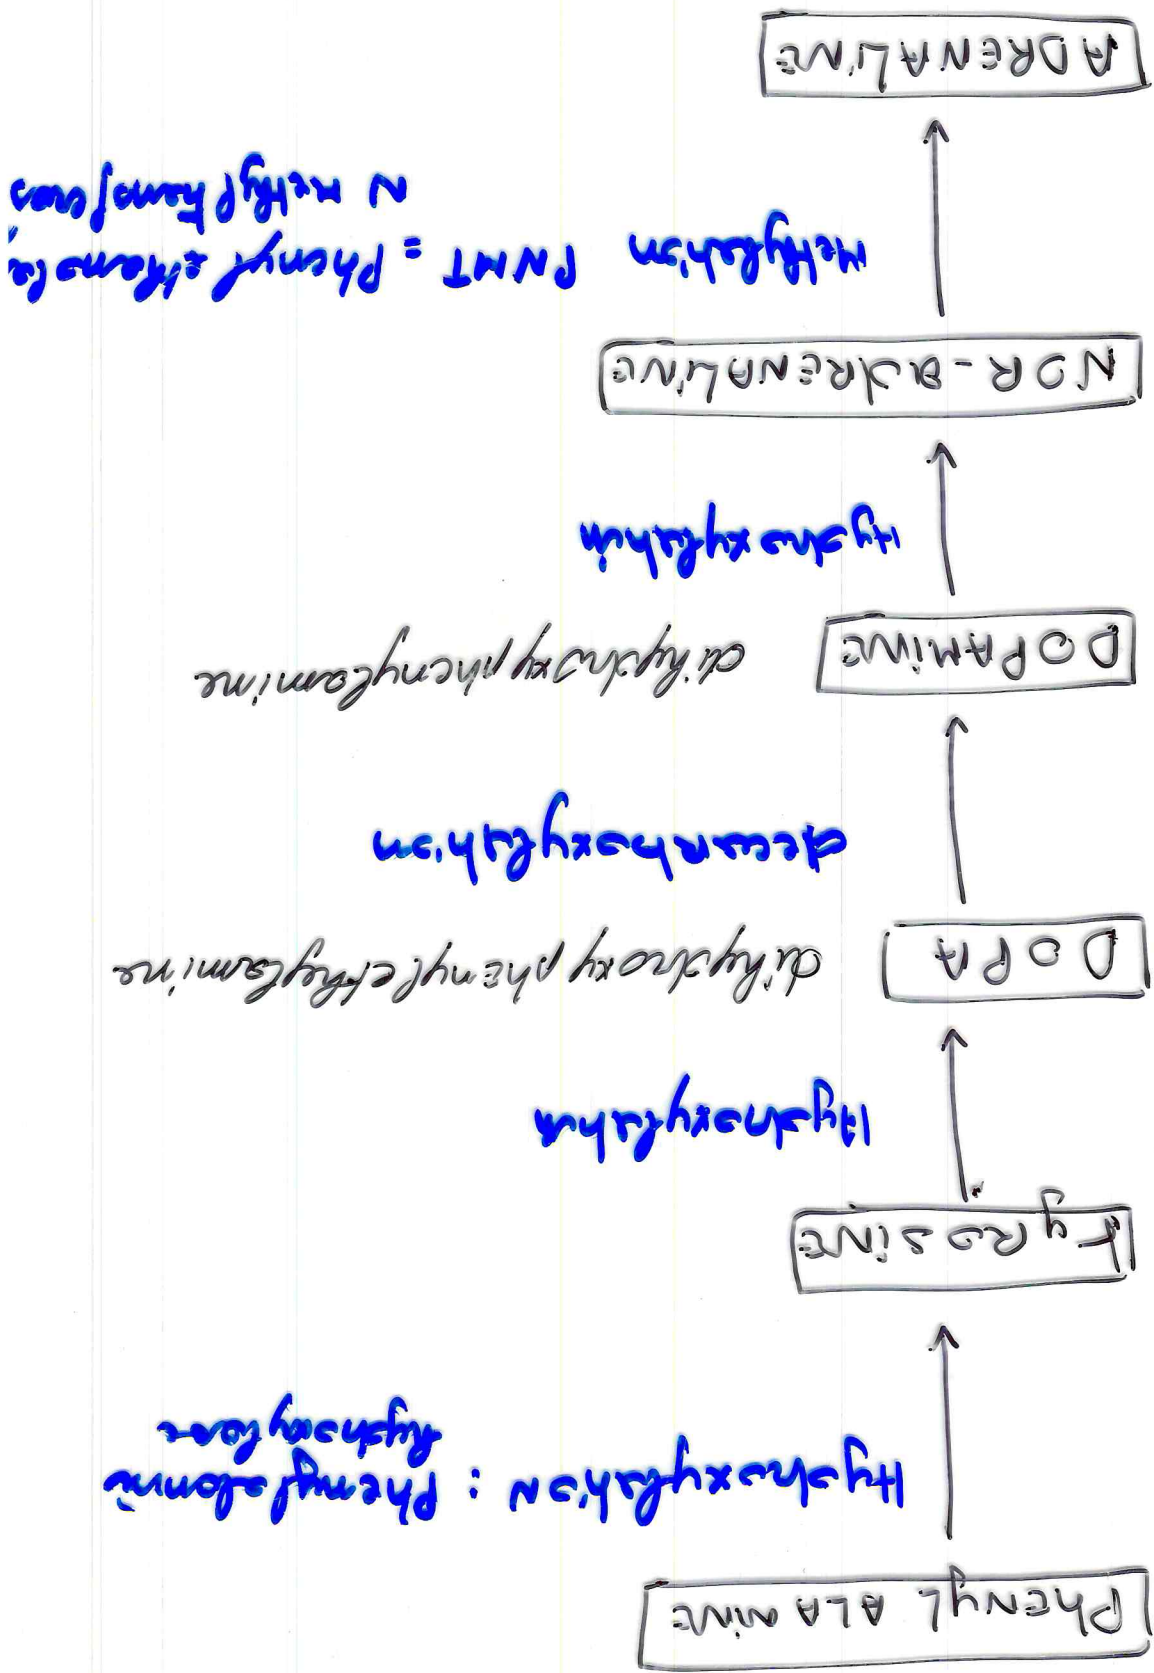 PhENyL ALANiNE
HydroxylatioN : Phenylalanine
hydroxylase
tyROSiNE
Hydroxylation
DOPA dihydroxyphenylethylamine
decarboxylation
DOPAMiNE dihydroxyphenylamine
Hydroxylation
NOR-adRENALiNE
Methylation PNMT = Phenyl ethanola
N methyl transferas
ADRENALiNE